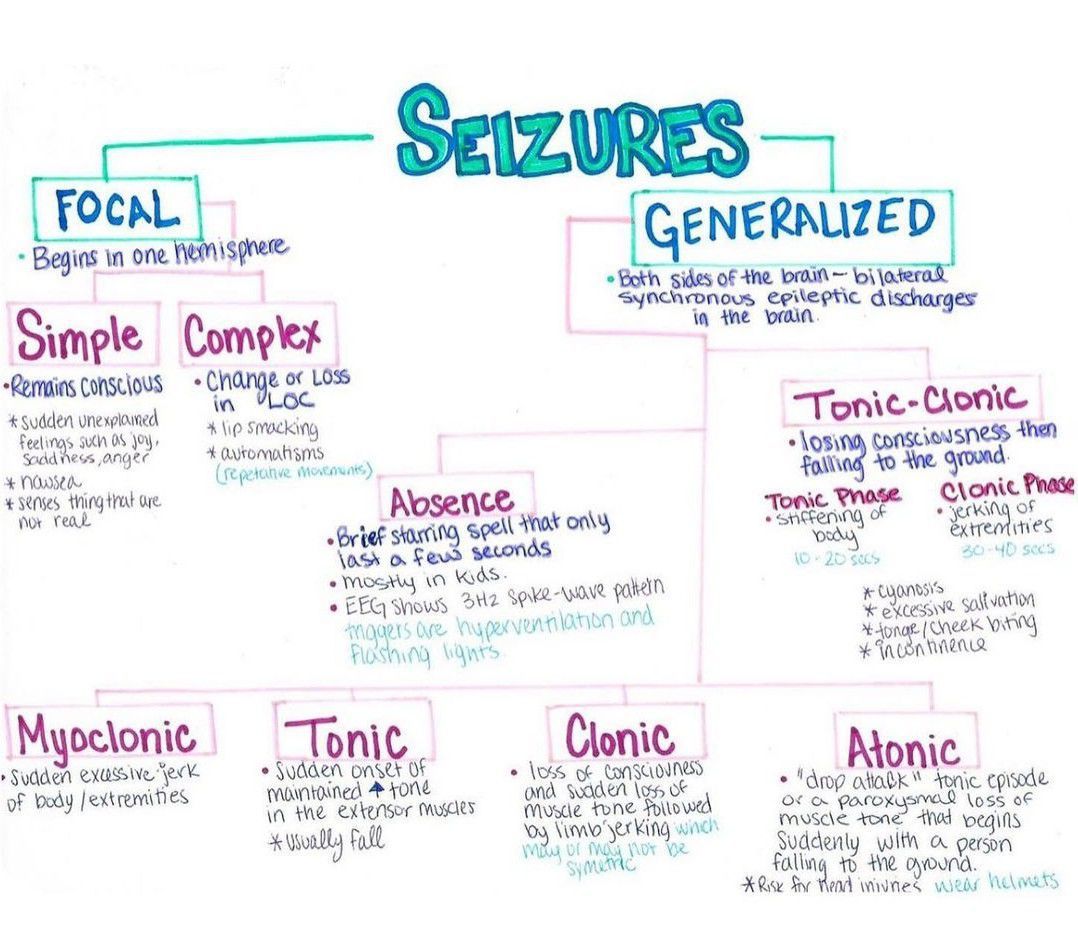 SEIZURES
FOCAL
• Begins in one hemisphere
Simple
• Remains conscious
* sudden unexplained
feelings such as joy,
saddness, anger
* nausea
* senses thing that are
not real
Complex
• Change or Loss
in LOC
* lip smacking
* automatisms
(repetative movements)
GENERALIZED
• Both sides of the brain – bilateral
synchronous epileptic discharges
in the brain.
Tonic-Clonic
• losing consciousness then
falling to the ground.
Tonic Phase
• Stiffening of
body
10-20 secs
Clonic Phase
• jerking of
extremities
30-40 secs
* cyanosis
* excessive salivation
* tonge/cheek biting
* incontinence
Absence
• Brief starring spell that only
last a few seconds
• mostly in kids.
• EEG shows 3Hz spike-wave pattern
triggers are hyperventilation and
flashing lights.
Myoclonic
• Sudden excessive jerk
of body/extremities
Tonic
• Sudden onset of
maintained ↑ tone
in the extensor muscles
* usually fall
Clonic
• loss of consciouness
and sudden loss of
muscle tone followed
by limb jerking which
may or may not be
symetric
Atonic
• "drop attack" tonic episode
or a paroxysmal loss of
muscle tone that begins
Suddenly with a person
falling to the ground.
* Risk for head injuries wear helmets